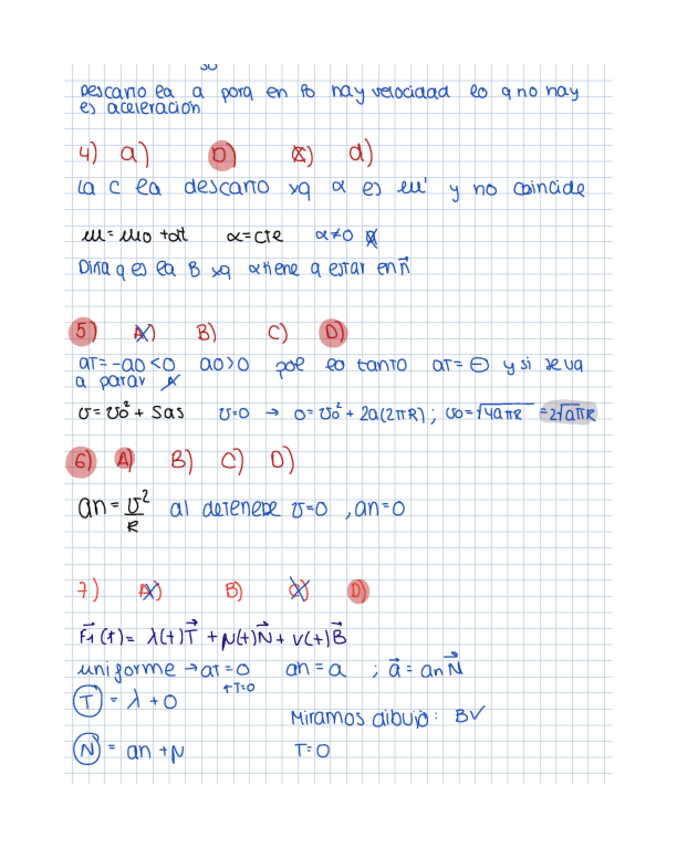 Descarto la a porq en to hay velocidad lo q no hay
es aceleración
4) a) b) c) d)
La c la descarto xq α es ω' y no coincide
ω = ω0 + αt α = cte α ≠ 0
Diria q es la B xq α tiene q estar en n
5) A) B) C) D)
aT = -a0 < 0 a0 > 0 por lo tanto aT = ⊖ y si se va
a parar
v = v0² + 2as v=0 → 0 = v0² + 2a(2πR) ; v0 = √4aπR = 2√aπR
6) A) B) C) D)
an = v²/R al detenerse v=0 , an=0
7) A) B) C) D)
F1(t) = λ(t)T + μ(t)N + ν(t)B
uniforme → aT = 0 an = a ; a = an N
↑T=0
T = λ + 0
Miramos dibujo: B✓
N = an + μ T=0